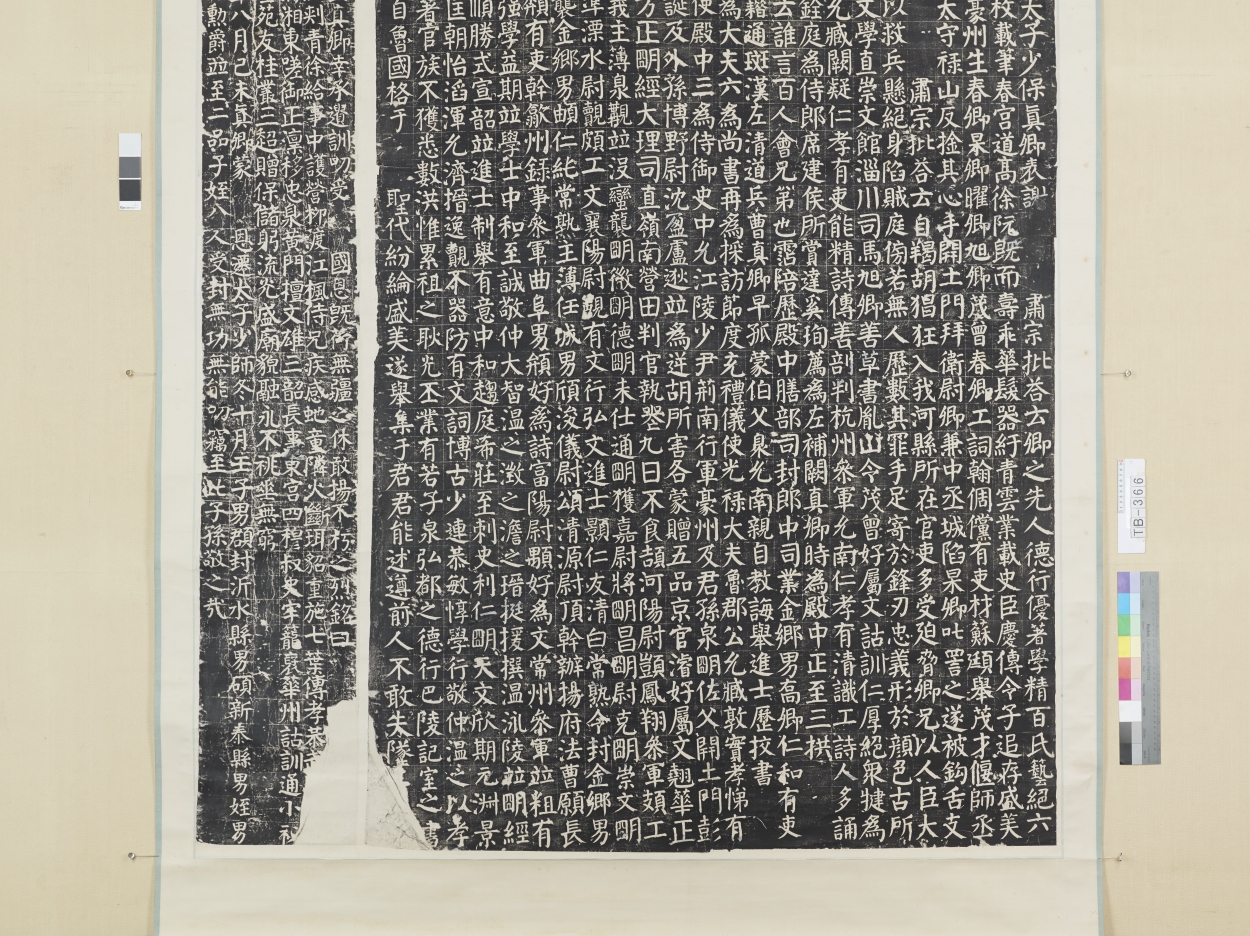 太子少保真卿表謝 肅宗批荅云卿之先人德行優著學精百氏藝絕六
枝載筆春宮道高徐阮既而壽乖華髮器紆青雲業載史臣慶傳令子追存盛美
豪州生春卿杲卿曜卿旭卿茂曾春卿工詞翰倜儻有吏材蘇頲舉茂才偃師丞
太守祿山反捨其心手開土門拜衛尉卿兼中丞城陷杲卿叱詈之遂被鉤舌支
肅宗批荅云自羯胡猖狂入我河縣所在官吏多受迫脅卿兄以人臣大
以救兵懸絕身陷賊庭傍若無人歷數其罪手足寄於鋒刃忠義形於顏色古所
文學直崇文館淄川司馬旭卿善草書胤山令茂曾好屬文詁訓仁厚絕衆揵為
允臧闕疑仁孝有吏能精詩傳善剖判杭州叅軍允南仁孝有清識工詩人多誦
銓庭為侍郎席建侯所賞達奚珣薦為左補闕真卿時為殿中正至三拱
去誰言百人會兄弟也霑陪歷殿中膳部司封郎中司業金鄉男喬卿仁和有吏
籍通班漢左清道兵曹真卿早孤蒙伯父臮允南親自教誨舉進士歷挍書
為大夫六為尚書再為採訪節度充禮儀使光祿大夫魯郡公允臧敦實孝悌有
使殿中三為侍御史中允江陵少尹荊南行軍豪州及君孫泉明佐父開土門彭
誕及外孫博野尉沈盈盧逖並為逆胡所害各蒙贈五品京官濬好屬文翹華正
方正明經大理司直嶺南營田判官執登九日不食頡河陽尉顗鳳翔叅軍頍工
我主薄泉觀並沒蠻龍明徽明德明未仕通明獲嘉尉將明昌明尉克明崇文明
準溧水尉覿頗工文襄陽尉覬有文行弘文進士顥仁友清白常熟令封金鄉男
襲金鄉男頗仁紕常熟主薄任城男頎浚儀尉頌清源尉頂幹辦揚府法曹願長
頫有吏幹歙州錄事叅軍曲阜男頯好為詩富陽尉顒好為文常州叅軍並粗有
強學益期並學士中和至誠敬仲大智溫之澂之澹之瑨挺援撰溫泳陵並明經
順勝式宣韶並進士制舉有意中和趨庭希莊至刺史利仁明天文欣期元洲景
匡朝怡滔渾允濟搢逸觀不器防有文詞博古少連恭敏惇學行敬仲溫之以孝
著官族不獲悉數洪惟累祖之耿光丕業有若子泉弘都之德行巴陵記室之書
自魯國格于 聖代紛綸盛美遂舉集于君君能述遵前人不敢失墜
真卿幸承遺訓叨受 國恩既荷無疆之休敢揚不朽之烈銘曰
刺青徐給事中護營柳渡江楓侍兄疾感地震隣火斷珥貂重施七葉傳孝恭
湘東隊御正凜移忠泉黃門檀文雄三韶長事東宮四穆叔史宇籠裒華州詁訓通小祕
苑友桂叢三超贈保儲躬流光盛廟貌融永不祧垂無窮
八月己未真卿蒙 恩遷太子少師冬十月壬子男頵封沂水縣男碩新泰縣男姪男
勳爵並至二品子姪八人受封無功無能叨竊至此子孫敬之哉
TB-366